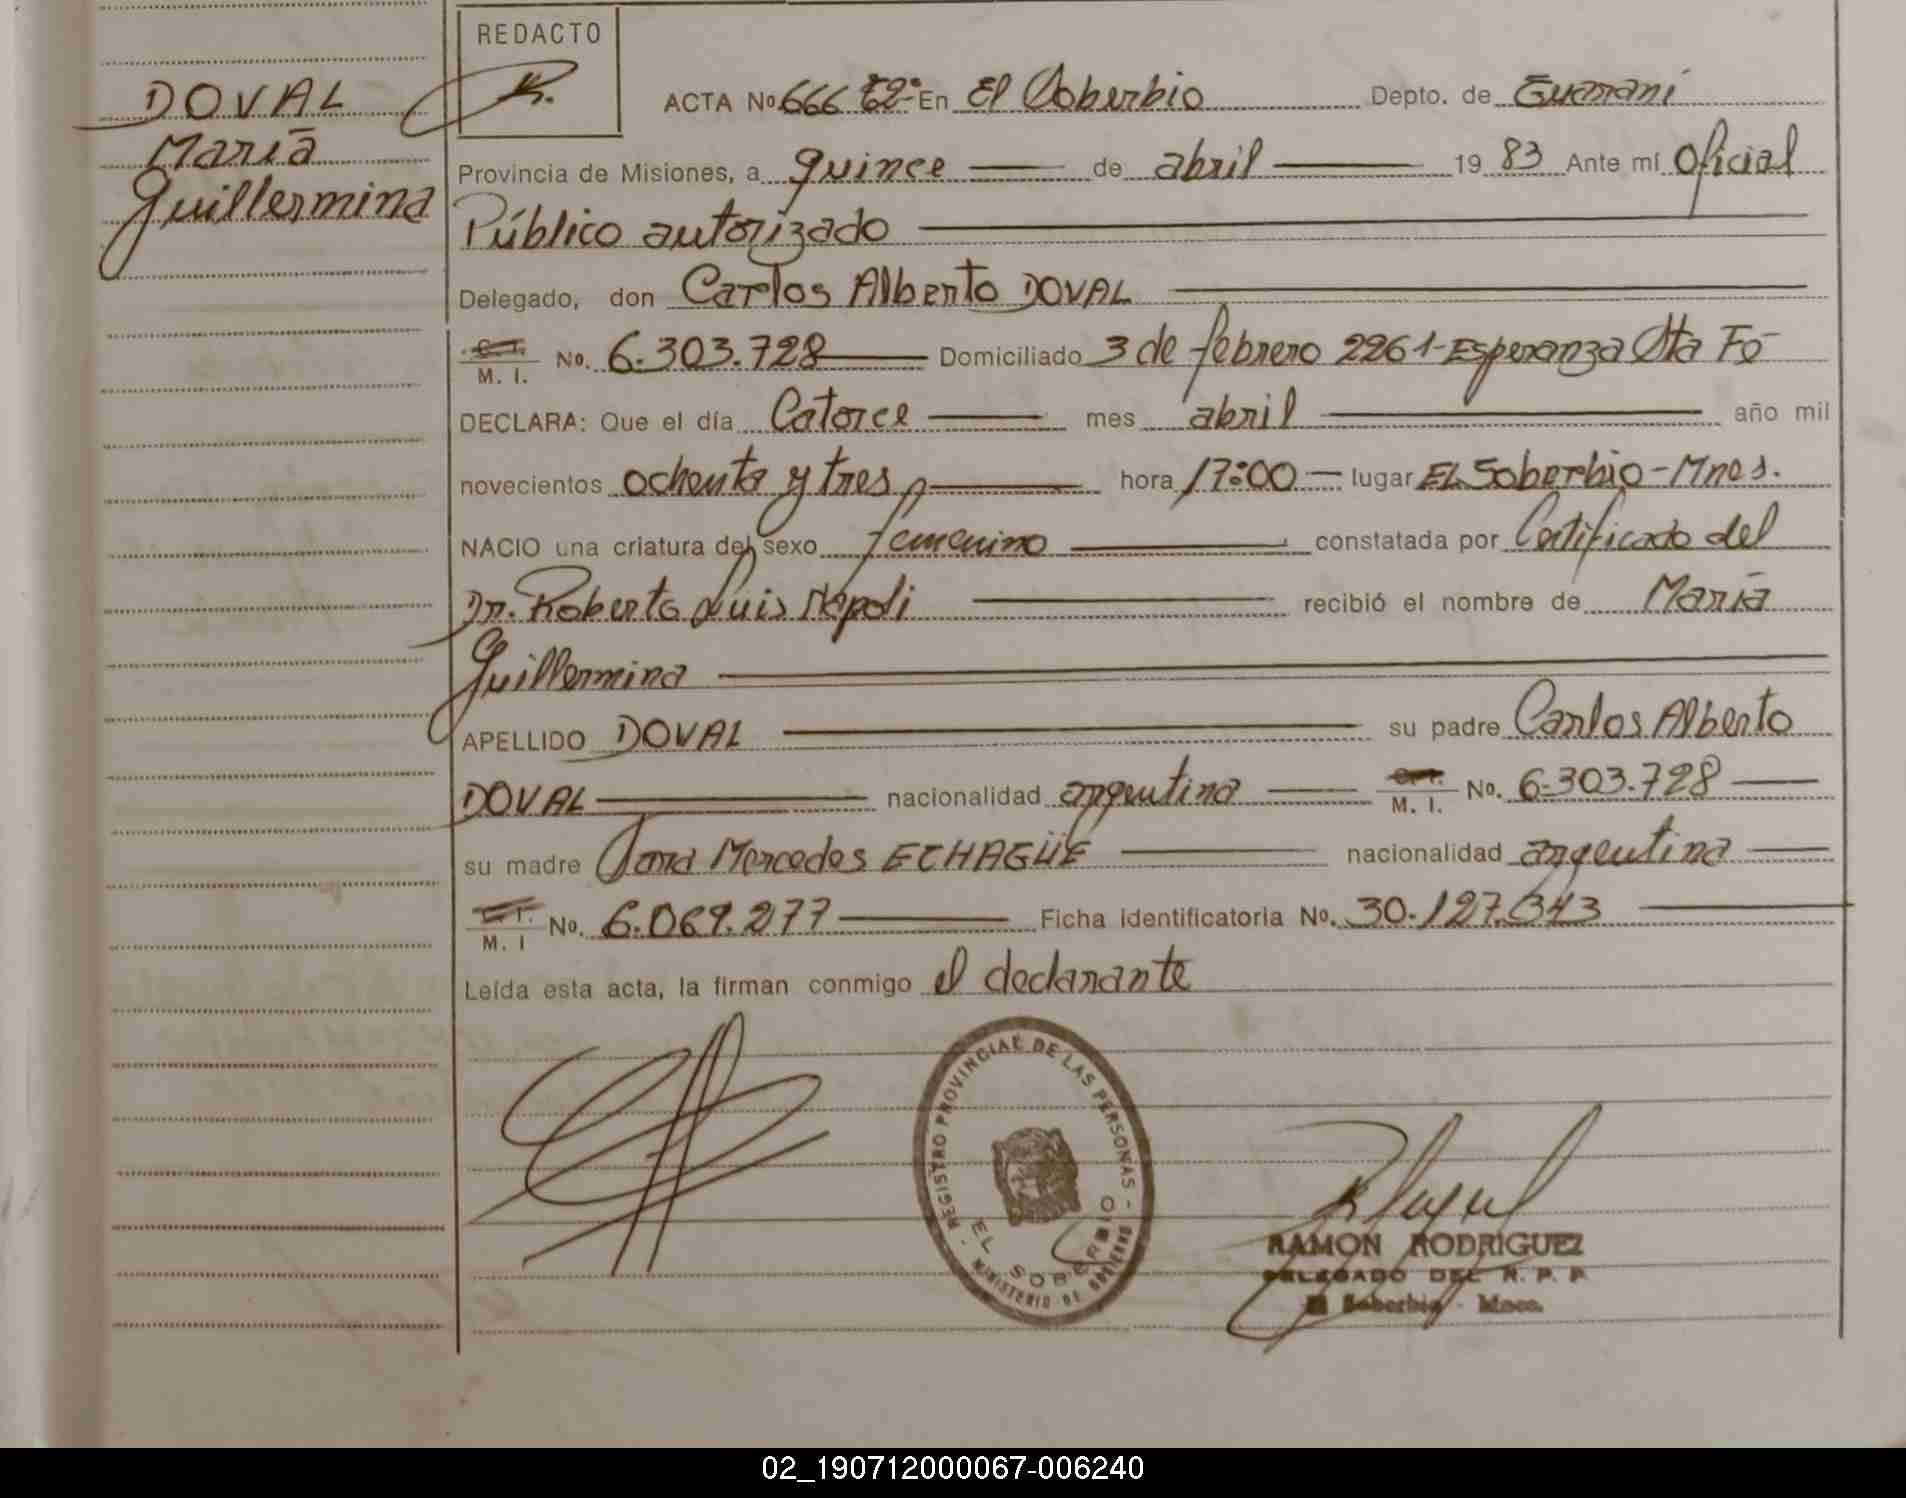 REDACTO
DOVAL
María
Guillermina
ACTA No. 666 Tº 2º En El Soberbio Depto. de Guaraní
Provincia de Misiones, a quince de abril 19 83 Ante mí Oficial
Público autorizado
Delegado, don Carlos Alberto DOVAL
M. I. No. 6.303.728 Domiciliado 3 de febrero 2261-Esperanza Sta Fé
DECLARA: Que el día Catorce mes abril año mil
novecientos ochenta y tres hora 17:00 lugar EL Soberbio-Mnes.
NACIO una criatura del sexo femenino constatada por Certificado del
Dr. Roberto Luis Nápoli recibió el nombre de María
Guillermina
APELLIDO DOVAL su padre Carlos Alberto
DOVAL nacionalidad argentina M. I. No. 6.303.728
su madre Mercedes ECHAGÜE nacionalidad argentina
M. I No. 6.069.277 Ficha identificatoria No. 30.127.343
Leída esta acta, la firman conmigo el declarante
REGISTRO PROVINCIAL DE LAS PERSONAS - MINISTERIO DE GOBIERNO -
EL SOBERBIO
RAMON RODRIGUEZ
DELEGADO DEL R. P. P.
El Soberbio - Mnes.
02_190712000067-006240